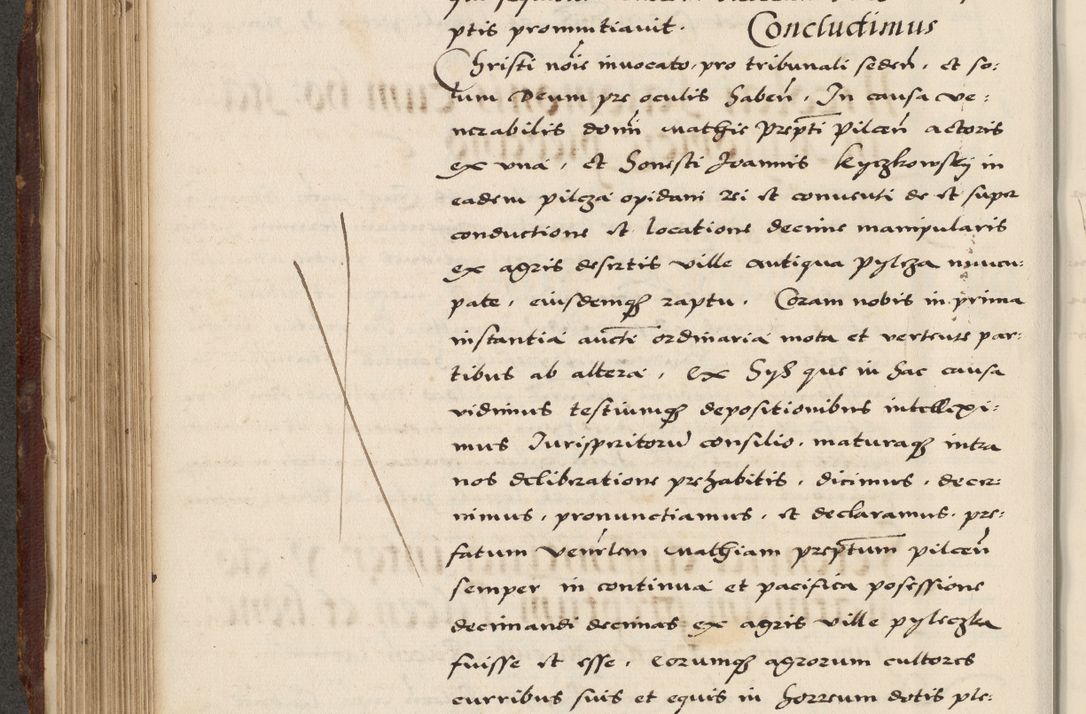 ptis pronuntiavit. Concludimus
Christi nõie invocato, pro tribunali seden̄, et so:
lum Deum pre oculis haben̄, In causa ve:
nerabilis domī Mathie Prep̄ti Pilcen̄ actoris
ex una, et honesti Joannis Kyczkowskj in
eadem pilcza opidani rei et conventi de et super
conductione et locatione decime manipularis
ex agris desertis ville antiqua Pylcza nuncu:
pate, eiusdemqꝫ raptu. Coram nobis in prima
instantia aucte ordinaria mota et verteute par:
tibus ab altera, Ex hijs que in hac causa
vidimus testiumqꝫ depositionibus intellexi:
mus Jurisperitorū consilio, maturaqꝫ intra
nos deliberatione prehabitis, dicimus, decer:
nimus, pronunctiamus, et declaramus, pre:
fatum Venerlem Mathiam preptum pilcen̄
semper in continua et pacifica posessione
decimandi decimas ex agris ville pyleczka
fuisse et esse, eorumqꝫ agrorum cultores
curribus suis et equis in horreum dotis ple: